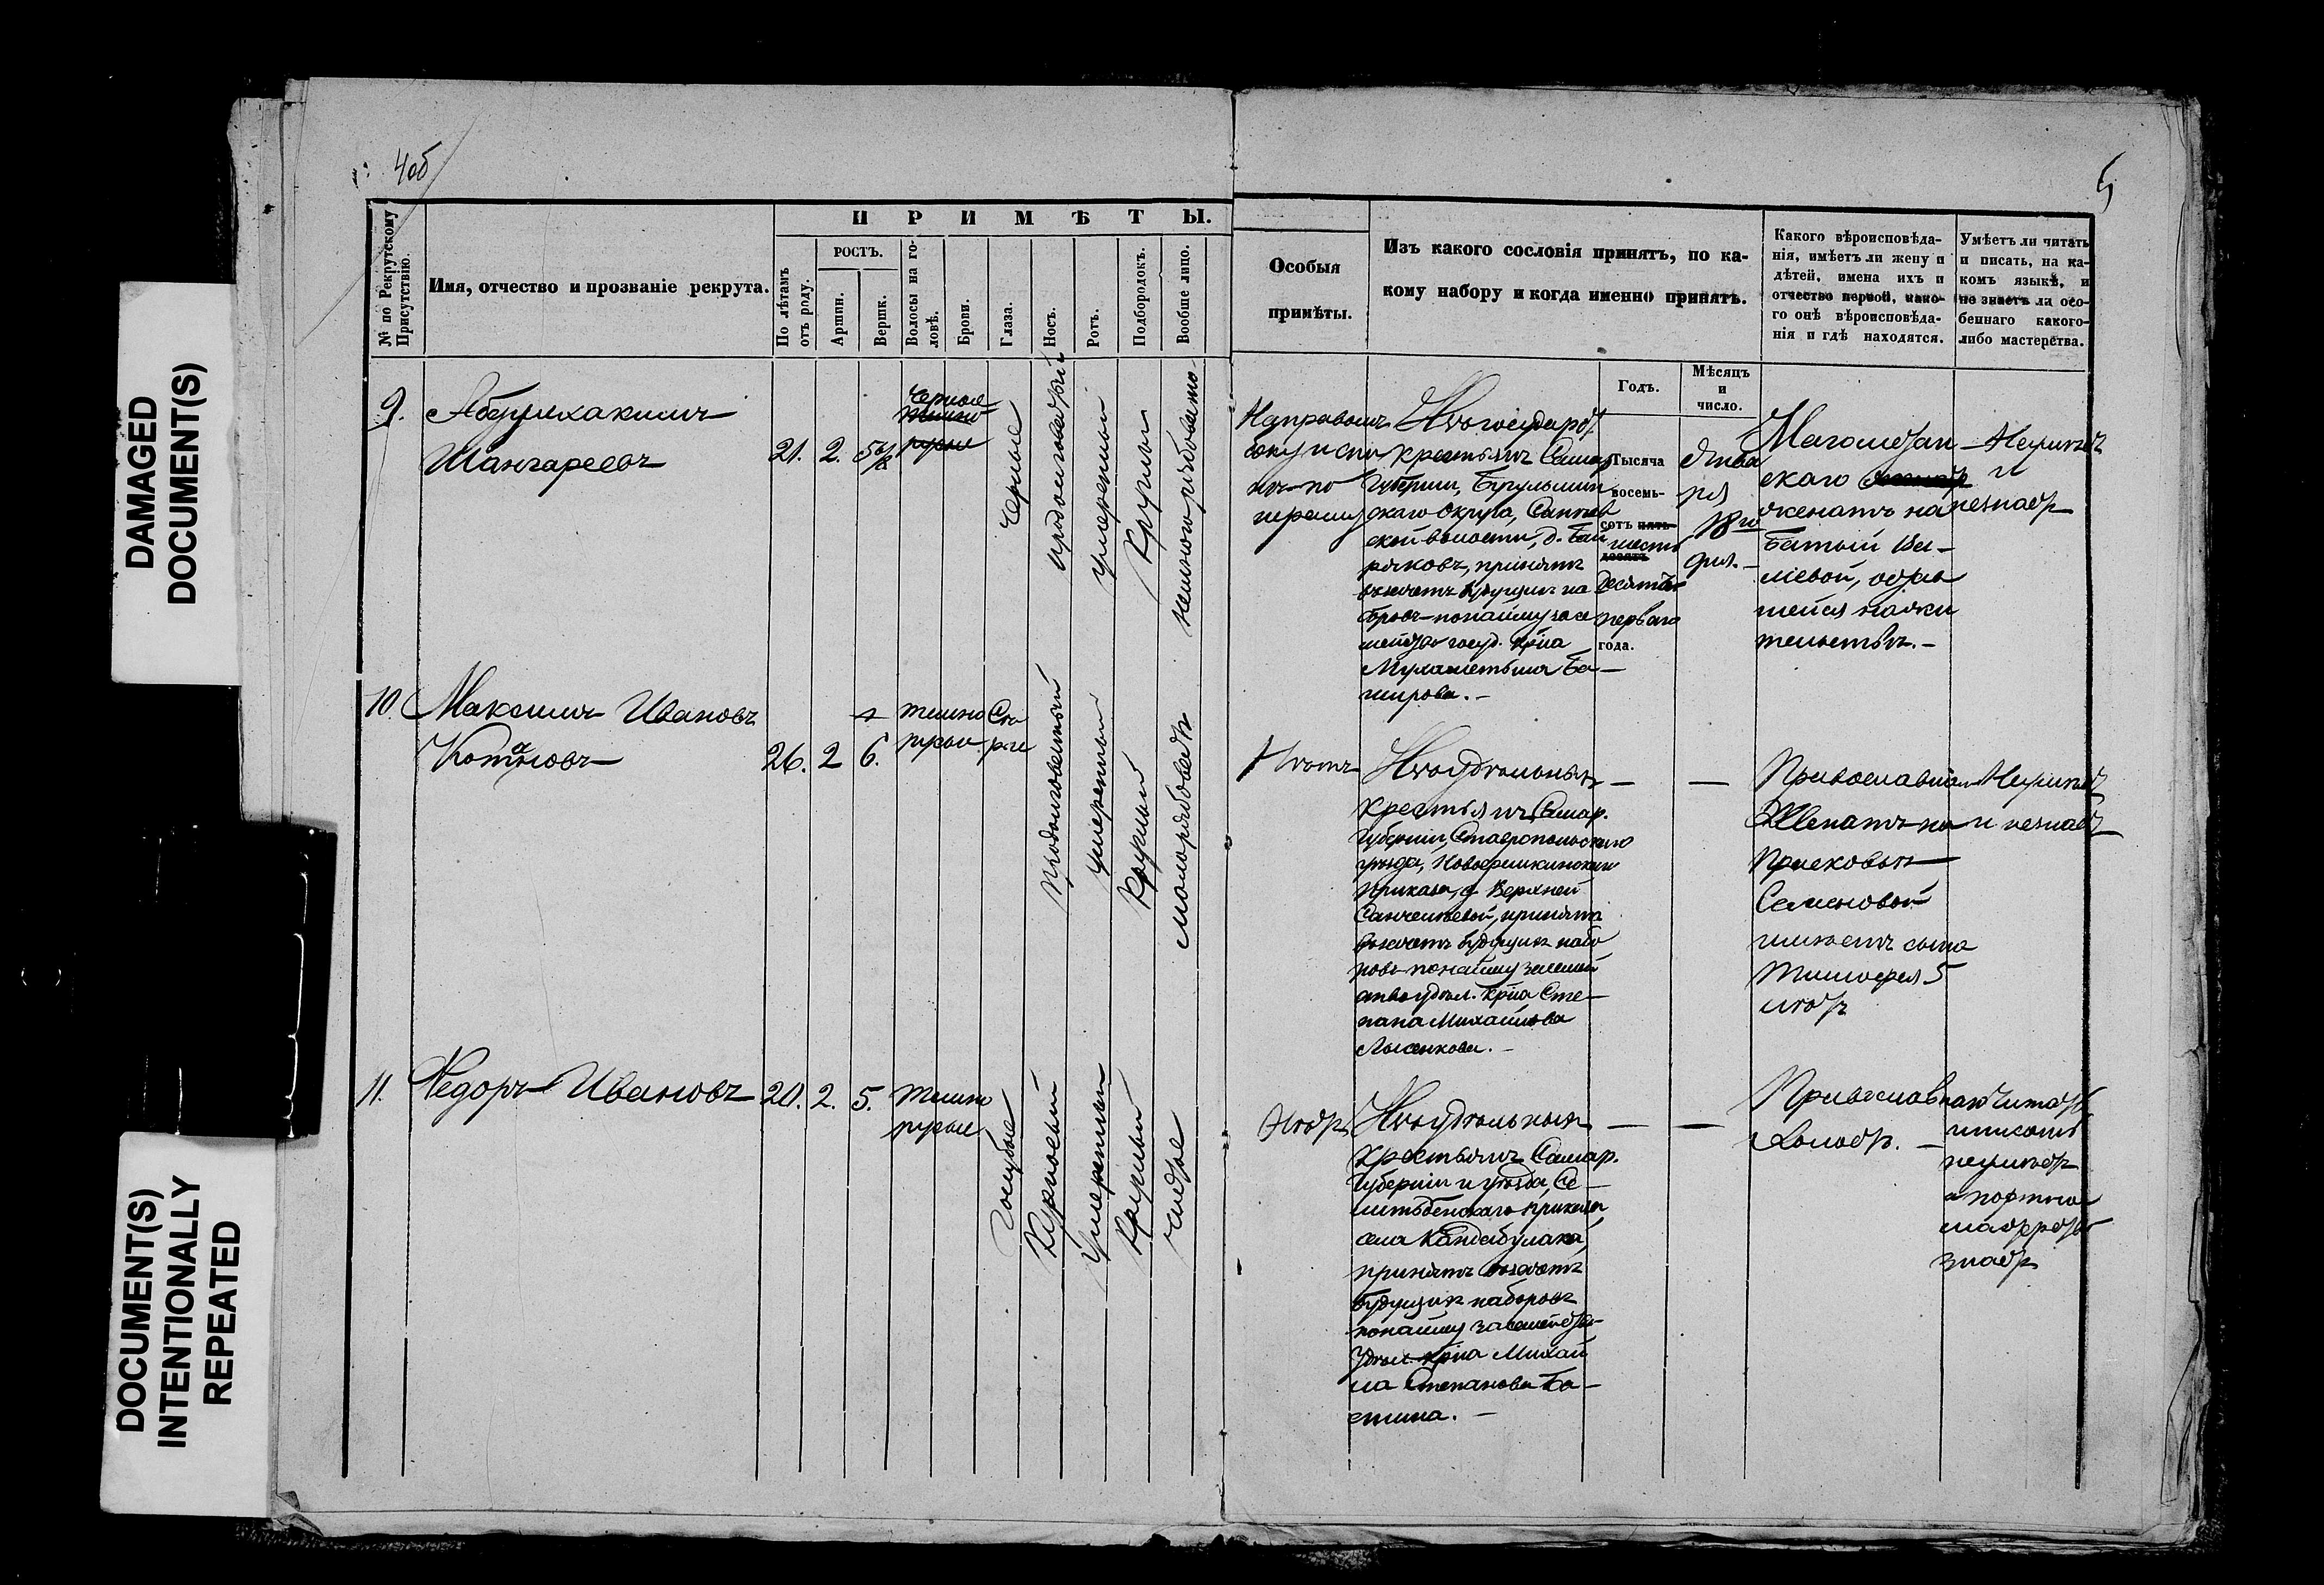 DAMAGED
DOCUMENT(S)
DOCUMENT(S)
INTENTIONALLY
REPEATED
4об
5
П Р И М Ѣ Т Ы.
№ по Рекрутскому
Присутствію.
Имя, отчество и прозваніе рекрута.
По лѣтамъ
отъ роду.
РОСТЪ.
Аршин.
Вершк.
Волосы на го-
ловѣ.
Брови.
Глаза.
Носъ.
Ротъ.
Подбородокъ.
Вообще лицо.
Особыя
примѣты.
Изъ какого сословія принятъ, по ка-
кому набору и когда именно принятъ.
Годъ.
Мѣсяцъ
и
число.
Какого вѣроисповѣда-
нія, имѣетъ ли жену и
дѣтей, имена ихъ и
отчество первой, како-
го онѣ вѣроисповѣда-
нія и гдѣ находятся.
Умѣетъ ли читать
и писать, на ка-
комъ языкѣ, и
не знаетъ ли осо-
беннаго какого-
либо мастерства.
9.
Абдулхакимъ
Шангареевъ
21. 2. 5
черные
темно
русые
черные
продолговатый
умеренный
Круглый
немного рябовато
На правомъ
боку
по
Изъ государ
крестьянъ Самар
Губерніи, Бугульмин
скаго Округа,
ской волости, д. Бай
ряковъ, принятъ
въ зачетъ будущихъ на
боровъ по найму за се
мейство госуд. кр̃на
Мухаметьша Ба-
широва. -
Тысяча
восемь-
сотъ пять-
шесть
десятъ
десятъ
перваго
года.
Янва
ря
18го
дня. -
Магомедан-
скаго
женатъ на
Ва-
лиевой, остав
шейся на жи
тельствѣ. -
Неумѣетъ
и
незнаетъ
10.
Максимъ Ивановъ
Коталовъ
26. 2 6.
темно
русы
Сѣ
рые
продолговатый
умеренный
Круглый
малорябоватъ
Нѣтъ
Изъ удѣльныхъ
крестьянъ Самар.
Губерніи, Ставропольскаго
уѣзда,
приказа, д. Верхней
Санчелеевой, принятъ
въ зачетъ будущихъ набо
ровъ по найму за семей
ство удѣл. кр̃на Сте-
пана Михайлова
Лысенкова. -
Православнаго
Женатъ на
Прасковьи
Семеновой
имѣетъ сына
Тимофея 5
лѣтъ
Неумѣетъ
и незнаетъ
11.
Федоръ Ивановъ
20. 2. 5.
темно
русые
Голубые
Курносый
Умеренный
Круглый
чистое
Нѣтъ
Изъ удѣльныхъ
крестьянъ Самар.
Губерніи и уѣзда, Се-
митъбенскаго приказа
села Кандабулака,
принятъ въ зачетъ
будущихъ наборовъ
по найму за семейство
Удѣл. кр̃на Михай
ла Степанова Ба-
стина. -
Православнаго
Холостъ. -
Читать
писать
неумѣетъ
а портное
мастерство
знаетъ